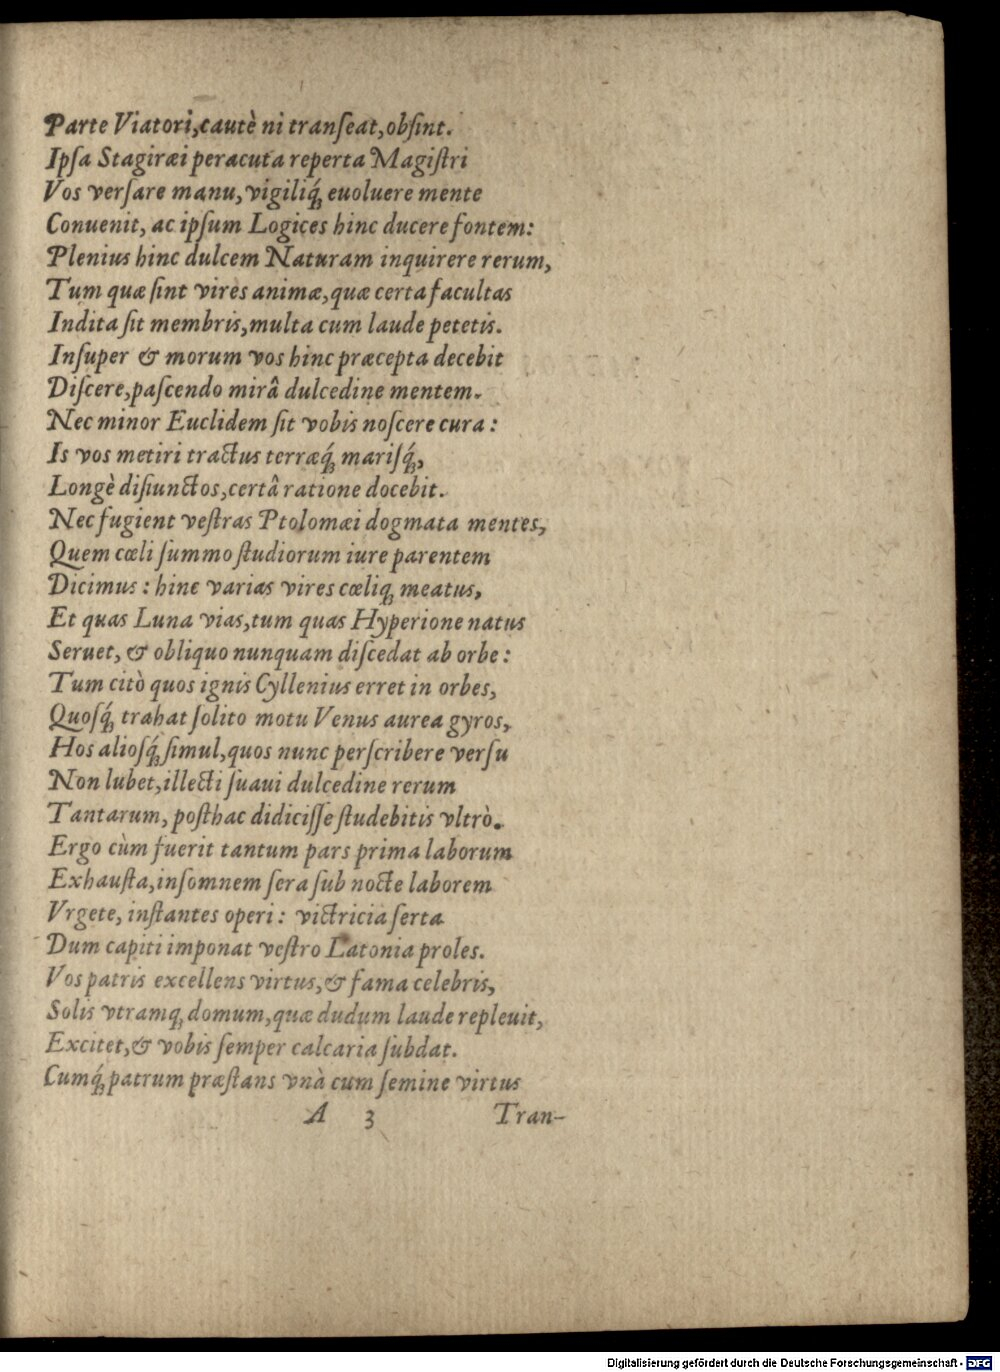 Parte Viatori,cautè ni tranſeat,obſint.
Ipſa Stagiræi peracuta reperta Magiſtri
Vos verſare manu, vigiliq́; euoluere mente
Convenit, ac ipſum Logices hinc ducere fontem:
Plenius hinc dulcem Naturam inquirere rerum,
Tum quæ ſint vires animæ,quæ certa facultas
Indita ſit membris,multa cum laude petetis.
Inſuper & morum vos hinc præcepta decebit
Diſcere,paſcendo mirâ dulcedine mentem.
Nec minor Euclidem ſit vobis noſcere cura:
Is vos metiri tractus terræq́; mariſq́;,
Longè diſiunctos,certâ ratione docebit.
Nec fugient veſtras Ptolomæi dogmata mentes,
Quem cœli ſummo ſtudiorum iure parentem
Dicimus: hinc varias vires cœliq; meatus,
Et quas Luna vias,tum quas Hyperione natus
Seruet, & obliquo nunquam diſcedat ab orbe:
Tum citò quos ignis Cyllenius erret in orbes,
Quoſq́; trahat ſolito motu Venus aurea gyros,
Hos alioſq́; ſimul,quos nunc perſcribere verſu
Non lubet,illecti ſuaui dulcedine rerum
Tantarum, poſthac didiciſſe ſtudebitis vltrò.
Ergo cùm fuerit tantum pars prima laborum
Exhauſta,inſomnem ſera ſub nocte laborem
Vrgete, inſtantes operi: victricia ſerta
Dum capiti imponat veſtro Latonia proles.
Vos patris excellens virtus,& fama celebris,
Solis vtramq; domum,quæ dudum laude repleuit,
Excitet,& vobis ſemper calcaria ſubdat.
Cumq́; patrum præſtans vnà cum ſemine virtus
A 3 Tran-
Digitalisierung gefördert durch die Deutsche Forschungsgemeinschaft - DFG